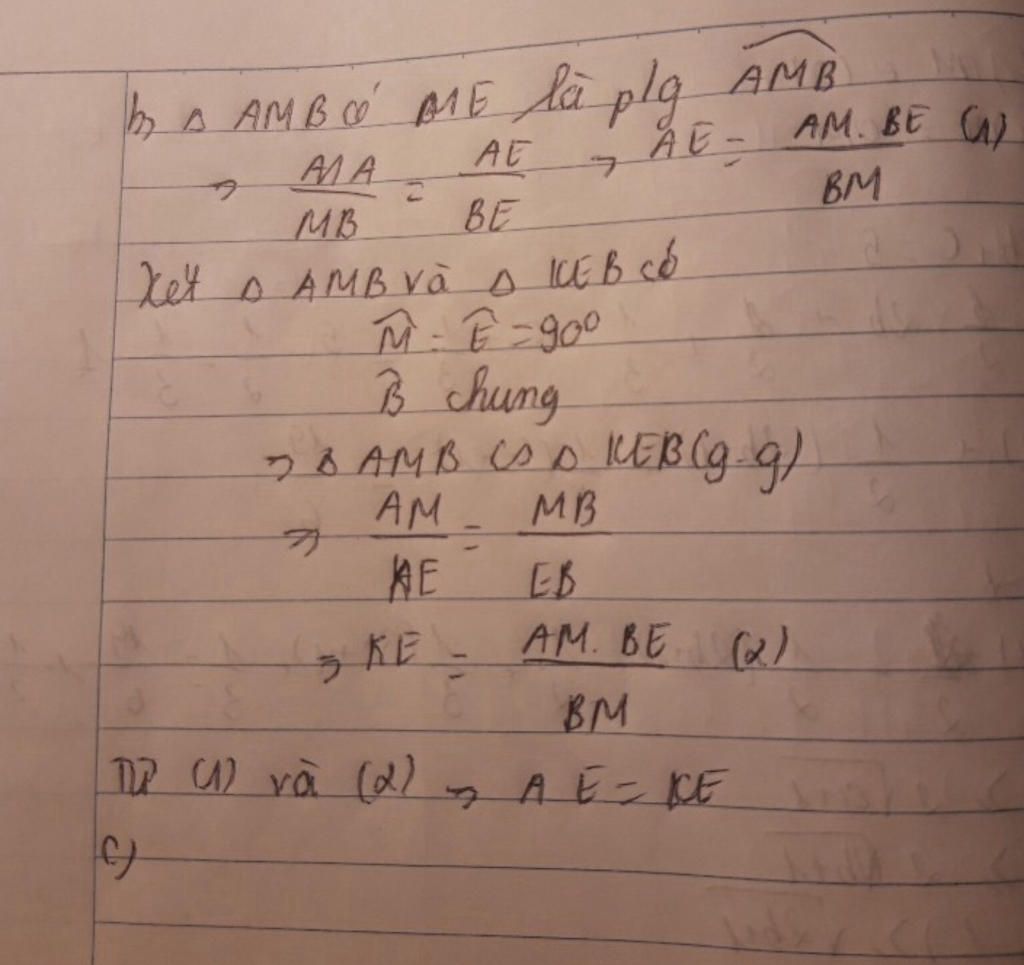 b, Δ AMB có ME là p/g \widehat{AMB}
⇒ \frac{MA}{MB} = \frac{AE}{BE} ⇒ AE = \frac{AM. BE}{BM} (1)
Xét Δ AMB và Δ KEB có
\widehat{M} = \widehat{E} = 90⁰
\widehat{B} chung
⇒ Δ AMB ∽ Δ KEB (g-g)
⇒ \frac{AM}{KE} = \frac{MB}{EB}
⇒ KE = \frac{AM. BE}{BM} (2)
Từ (1) và (2) ⇒ AE = KE
c)